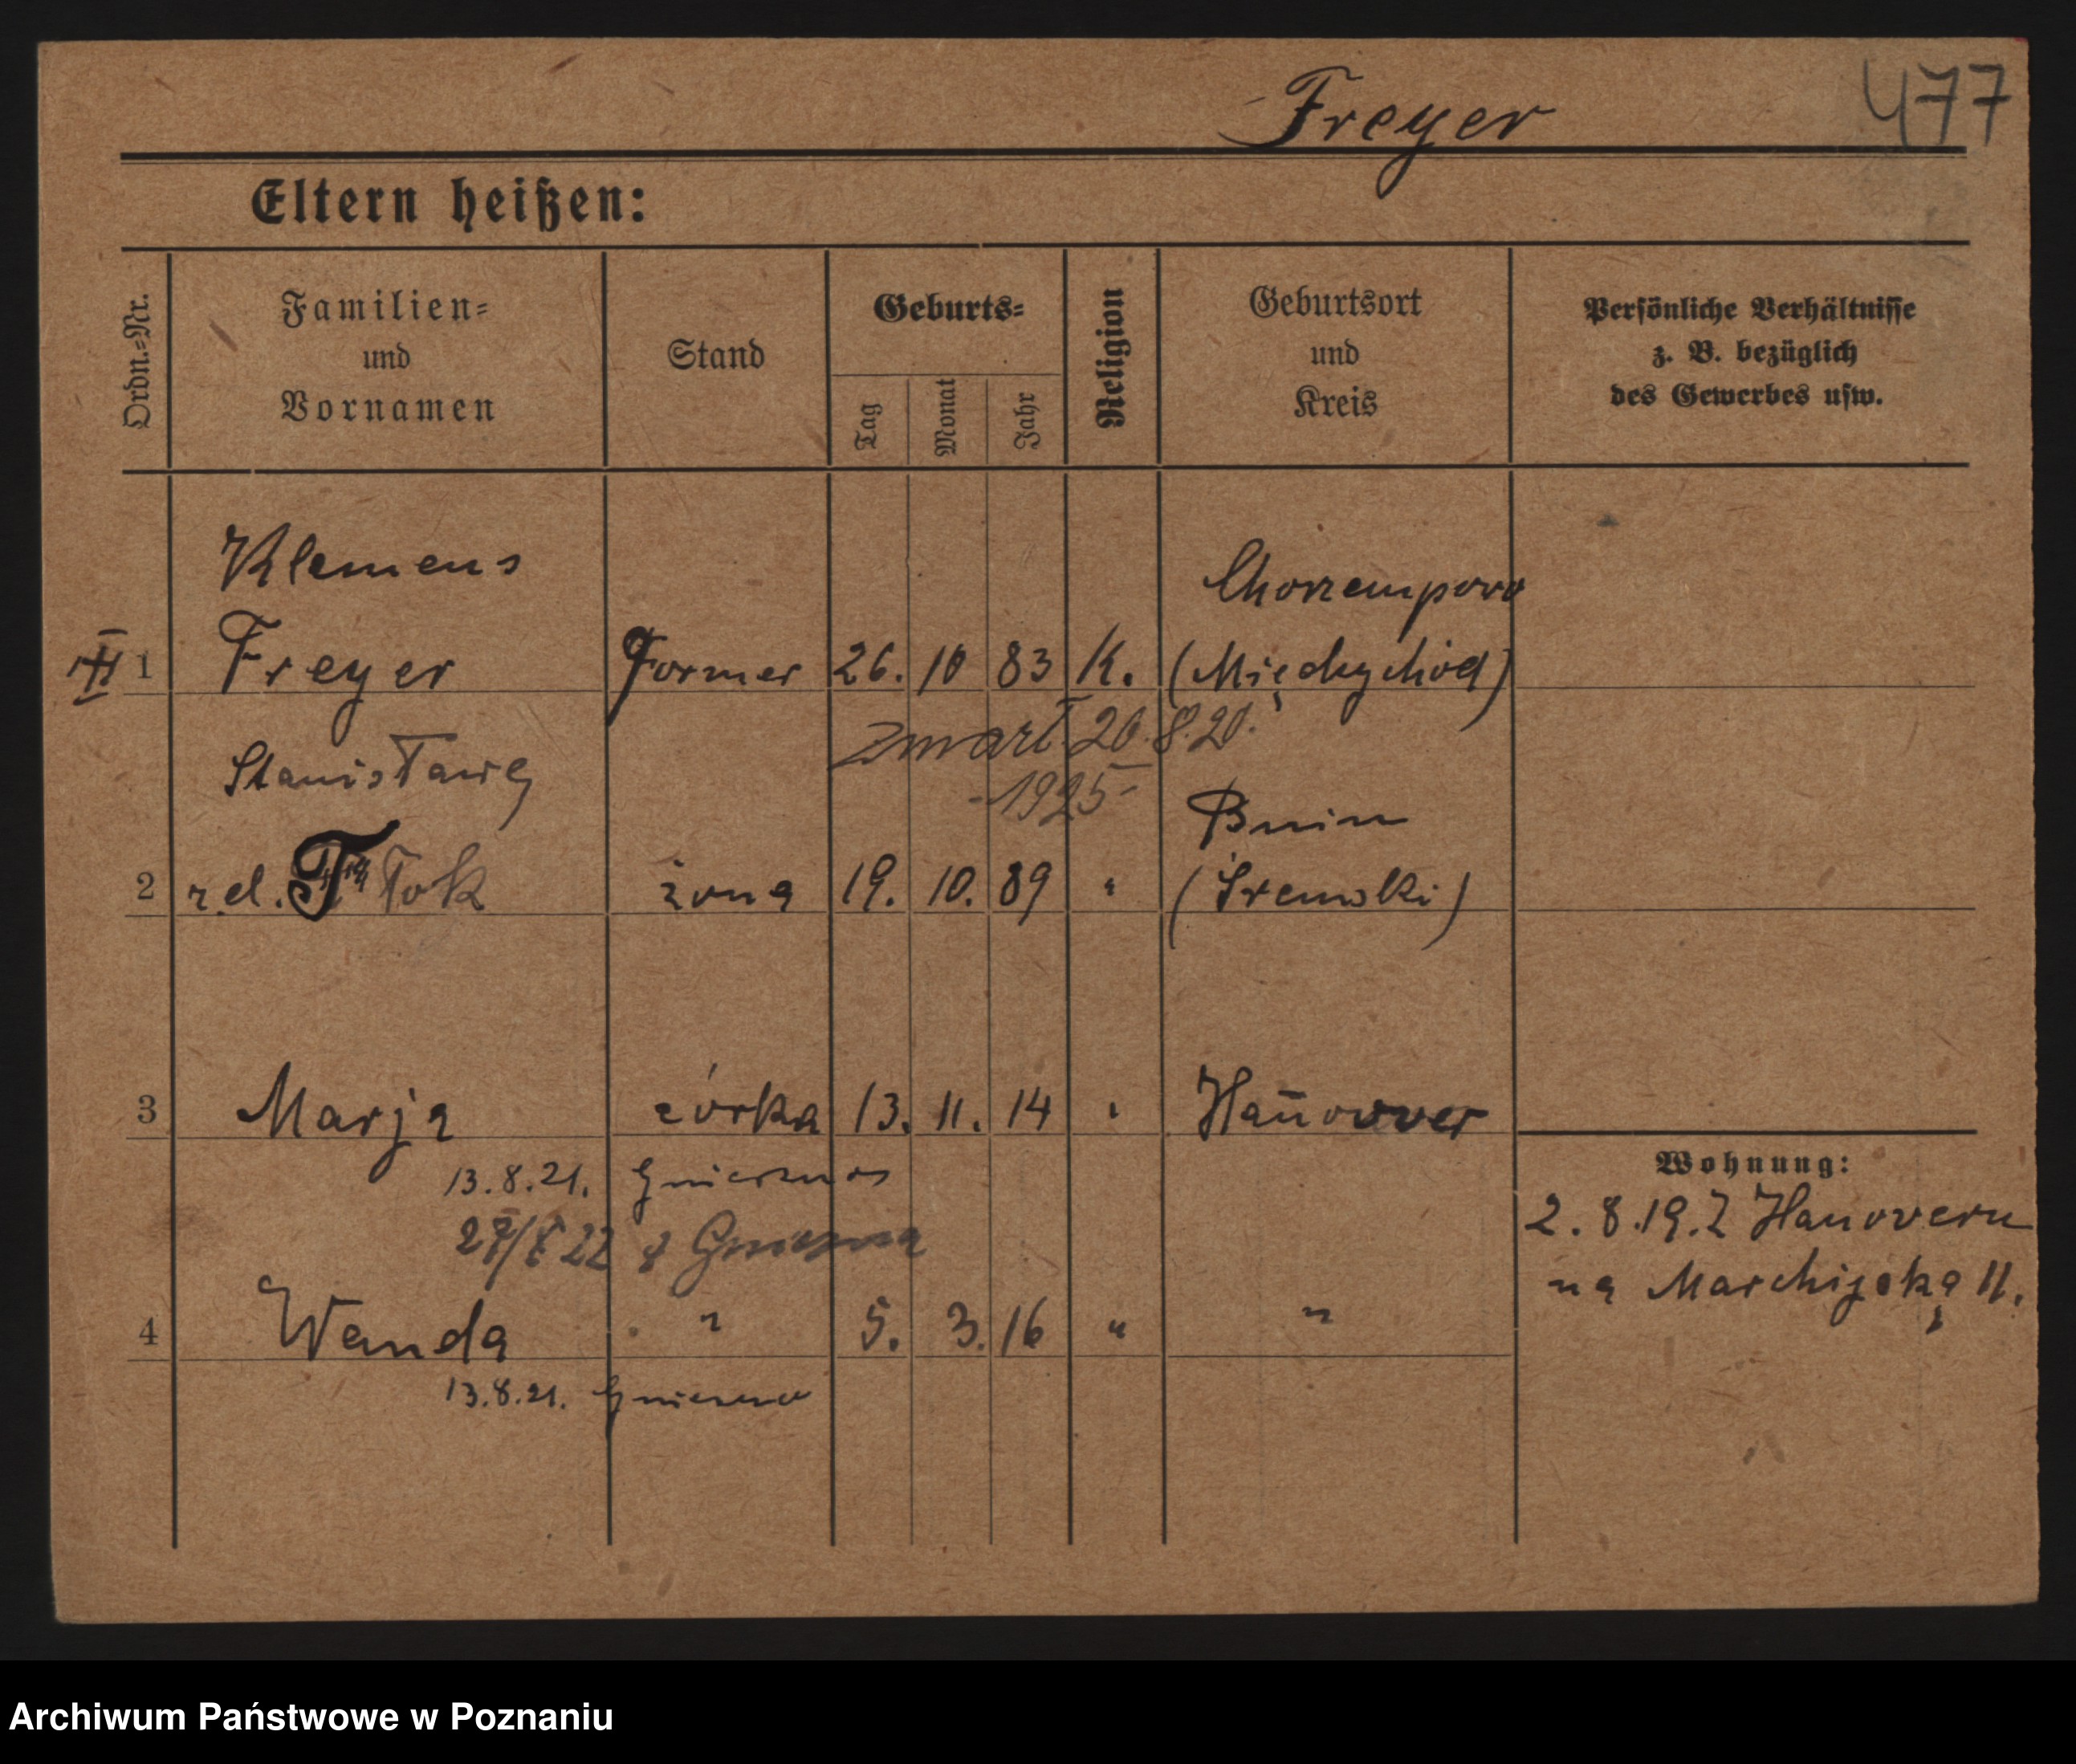 Freyer
477
Eltern heißen:
Ordn.-Nr.
Familien-
und
Vornamen
Stand
Geburts-
Tag
Monat
Jahr
Religion
Geburtsort
und
Kreis
Persönliche Verhältnisse
z. B. bezüglich
des Gewerbes usw.
Klemens
Chorzempowo
III 1 Freyer Former 26. 10 83 K. (Międzychód)
Stanisława
zmarł 20.8.20.
-1925-
Bnin
2 Tok żona 19. 10. 89 " (Śremski)
3 Marja córka 13. 11. 14 " Hannover
13.8.21. Gniezno
22 z Gniezna
4 Wanda " 5. 3. 16 " "
13.8.21. Gniezno
Wohnung:
2.8.19. Z Hanoveru
na 11.
Archiwum Państwowe w Poznaniu